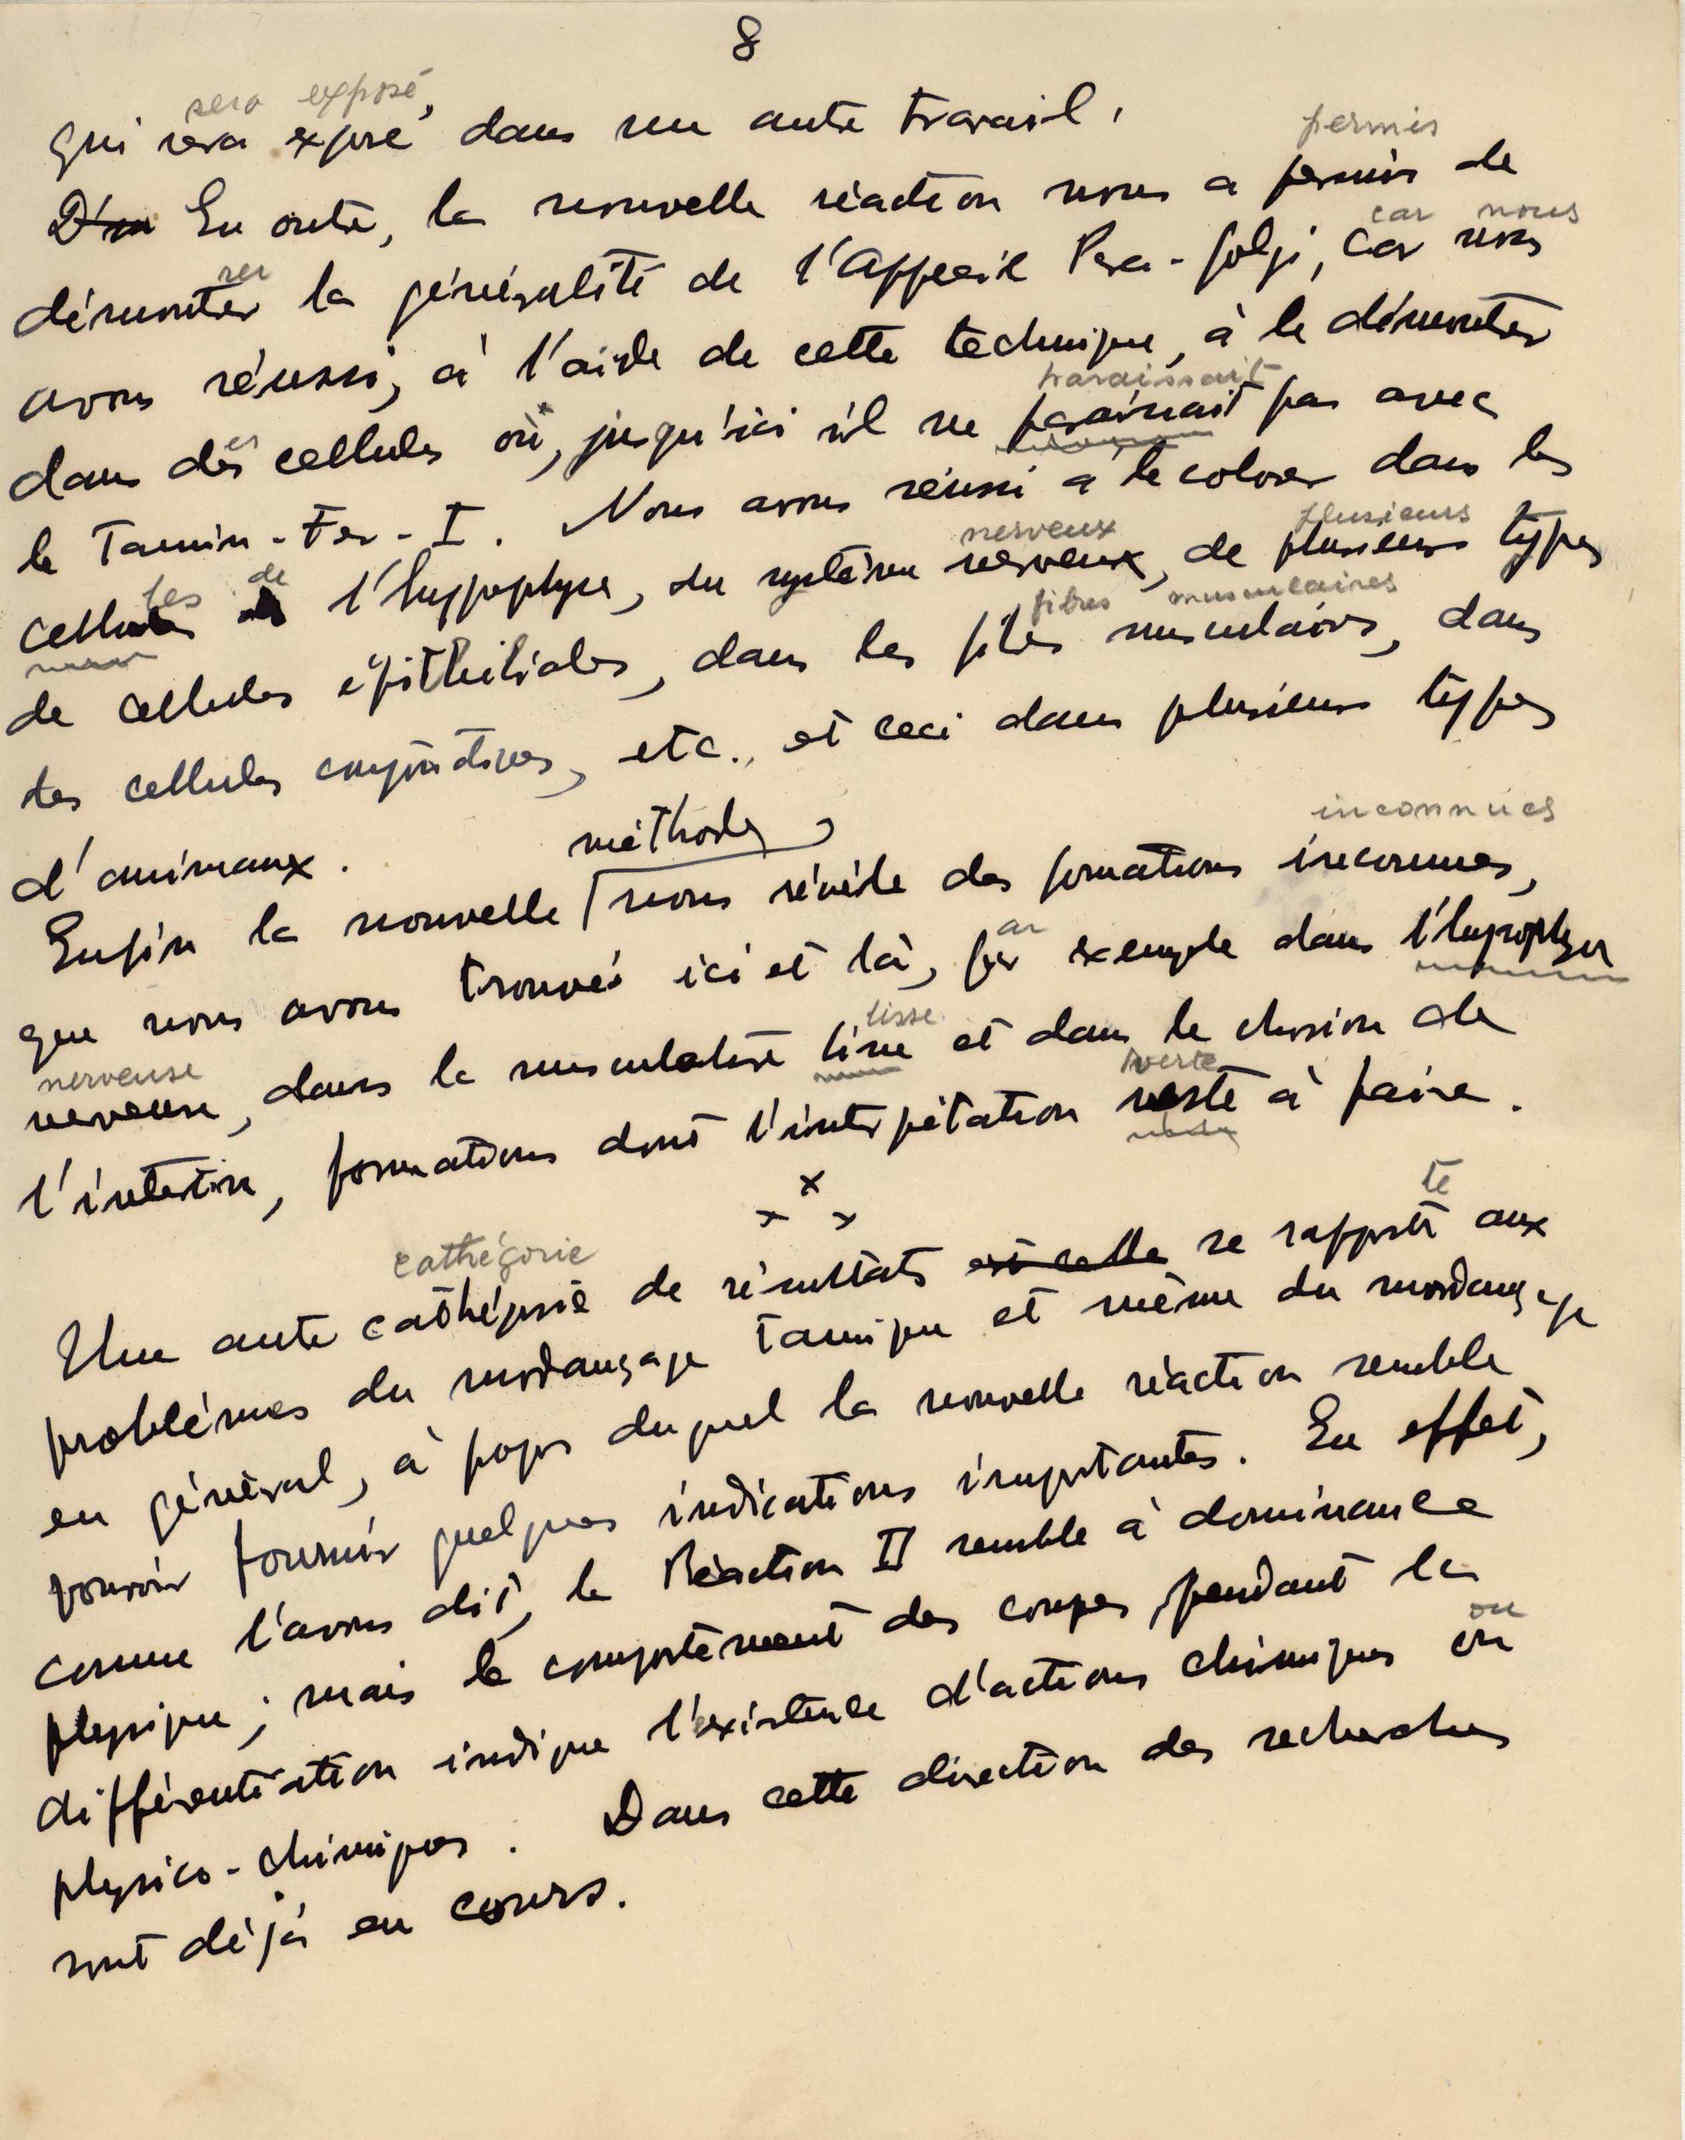 8
sera exposé,
qui sera exposé dans un autre travail.
permis
D'un En outre, la nouvelle réaction nous a permis de
rer car nous
démontrer la généralité de l'Appareil Para-Golgi, car nous
avons réussi, à l'aide de cette technique, à le démontrer
paraissait
dans des cellules où, jusqu'ici il ne paraissait pas avec
le Tannin-Fer-I. Nous avons réussi à le colorer dans les
les de nerveux plusieurs
cellules de l'hypophyse, du système nerveux, de plusieurs types
fibres musculaires
de cellules épithéliales, dans les fibres musculaires, dans
des cellules conjonctives, etc., et ceci dans plusieurs types
d'animaux.
méthode inconnues
Enfin la nouvelle nous révèle des formations inconnues,
ar
que nous avons trouvés ici et là, par exemple dans l'hypophyse
nerveuse lisse
nerveuse, dans la musculature lisse et dans le chorion de
l'intestin, formations dont l'interprétation reste à faire.
x
x x
cathégorie te
Une autre cathégorie de résultats est celle se rapporte aux
problèmes du mordançage tannique et même du mordançage
en général, à propos duquel la nouvelle réaction semble
pouvoir fournir quelques indications importantes. En effet,
comme l'avons dit, la Réaction II semble à dominance
physique; mais le comportement des coupes, pendant la
ou
différentiation indique l'existence d'actions chimiques ou
physico-chimiques. Dans cette direction des recherches
sont déjà en cours.